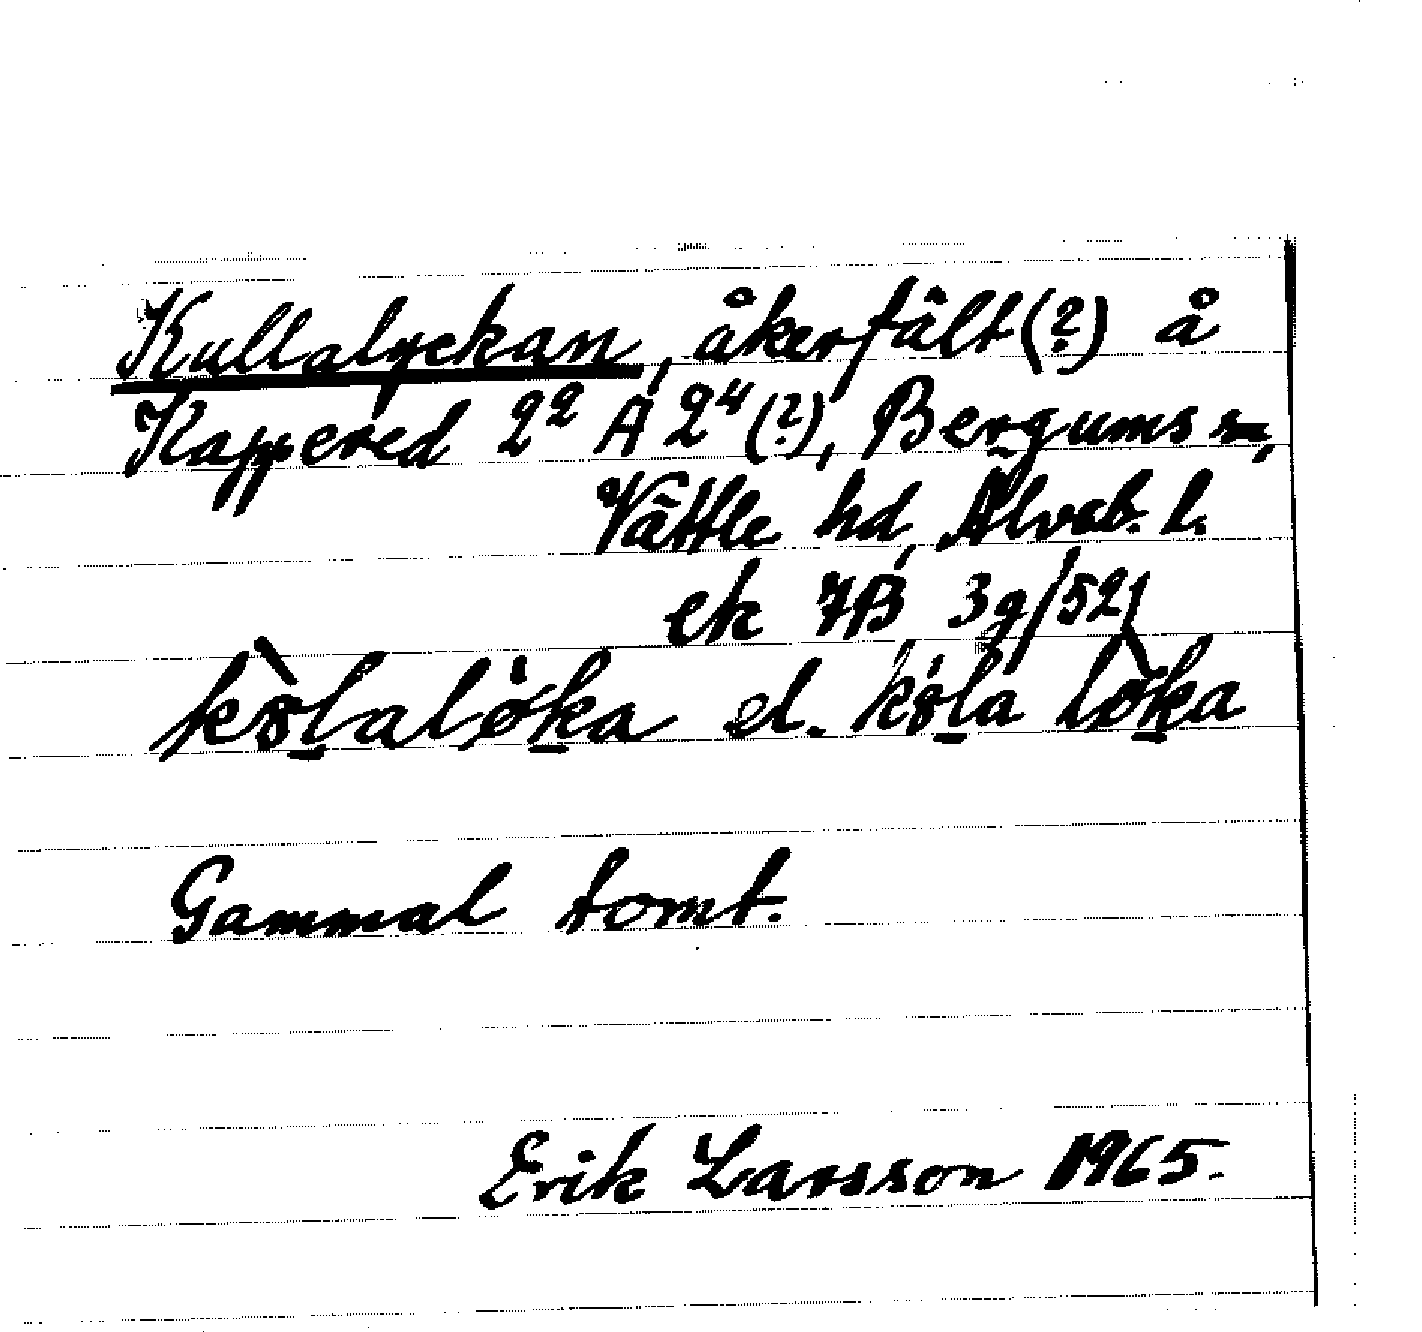 Kullalyckan, åkerfält(?) å
Kappered 2² Ä 2⁴(?), Bergums sn,
Vättle hd, Älvsb. l.
ek 7B 3g/52/
el.
Gammal tomt.
Erik Larsson 1965.